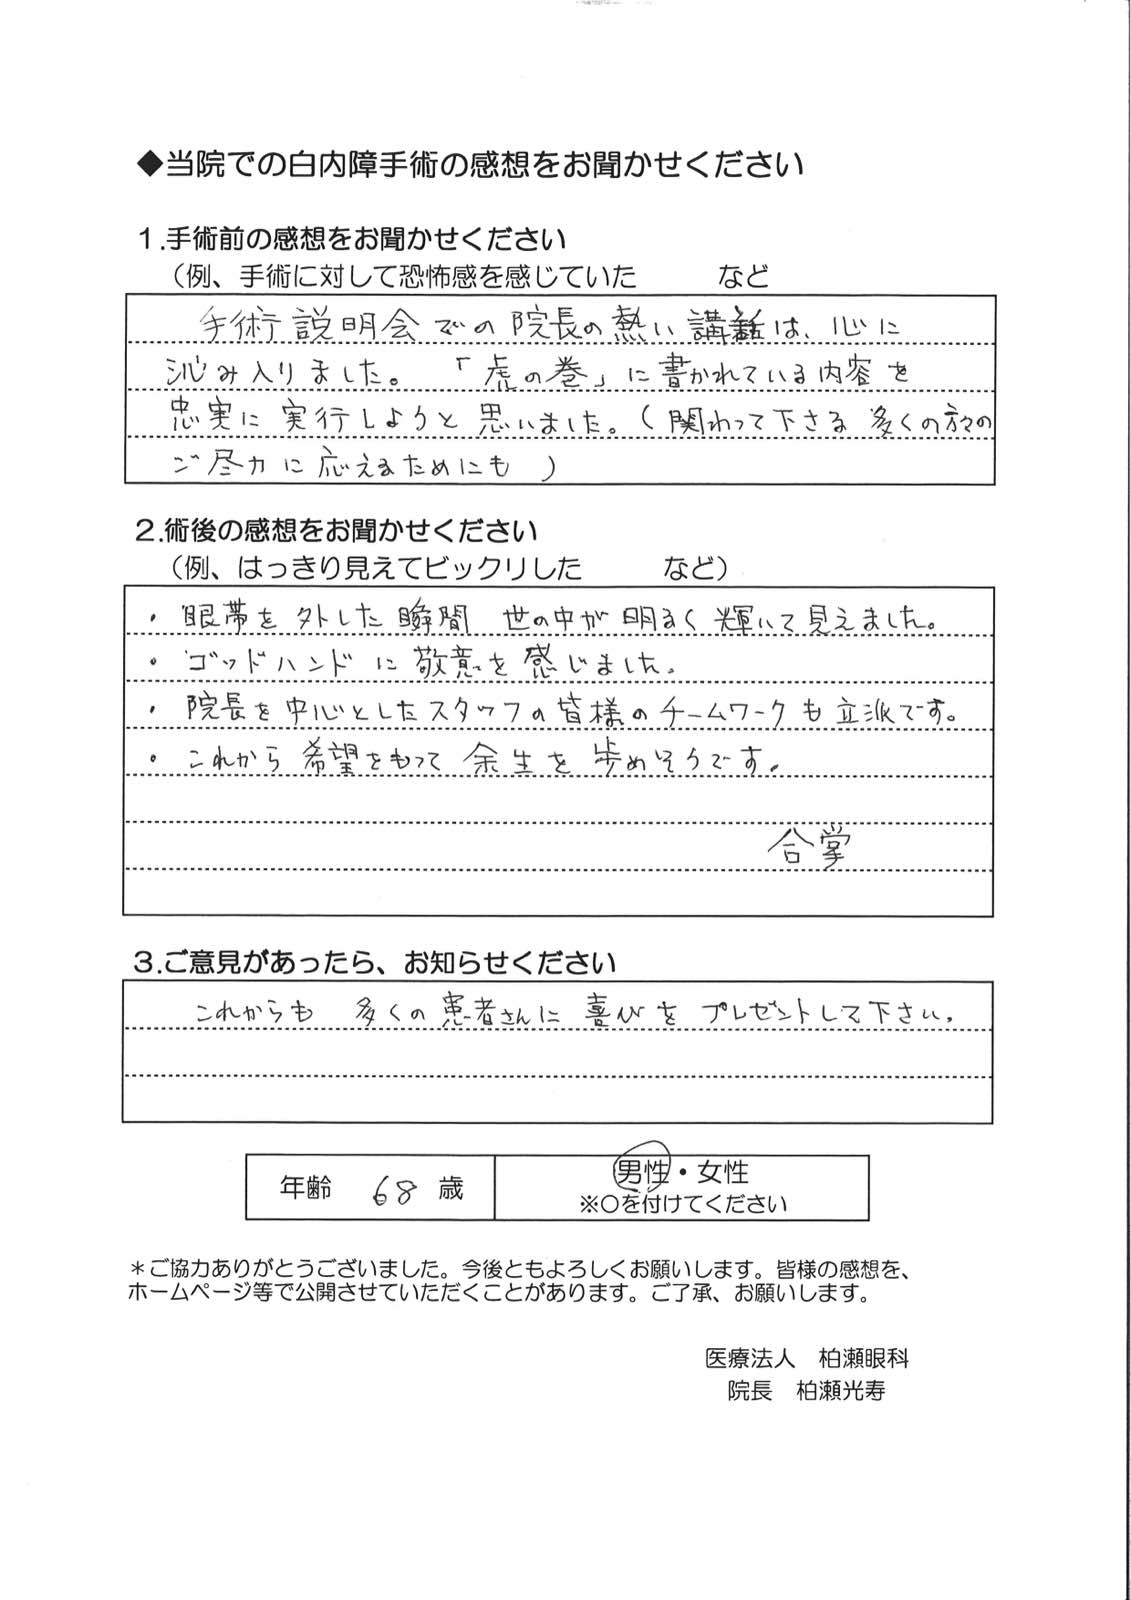 ◆当院での白内障手術の感想をお聞かせください
１.手術前の感想をお聞かせください
（例、手術に対して恐怖感を感じていた　　　など
手術説明会での院長の熱い講話は、心に
沁み入りました。「虎の巻」に書かれている内容を
忠実に実行しようと思いました。（関わって下さる多くの方々の
ご尽力に応えるためにも）
２.術後の感想をお聞かせください
（例、はっきり見えてビックリした　　　など）
・眼帯を外した瞬間 世の中が明るく輝いて見えました。
・ゴッドハンドに敬意を感じました。
・院長を中心としたスタッフの皆様のチームワークも立派です。
・これから希望をもって余生を歩めそうです。
合掌
３.ご意見があったら、お知らせください
これからも 多くの患者さんに 喜びを プレゼントして下さい。
年齢　68　歳
男性・女性
※〇を付けてください
＊ご協力ありがとうございました。今後ともよろしくお願いします。皆様の感想を、
ホームページ等で公開させていただくことがあります。ご了承、お願いします。
医療法人　柏瀬眼科
院長　柏瀬光寿